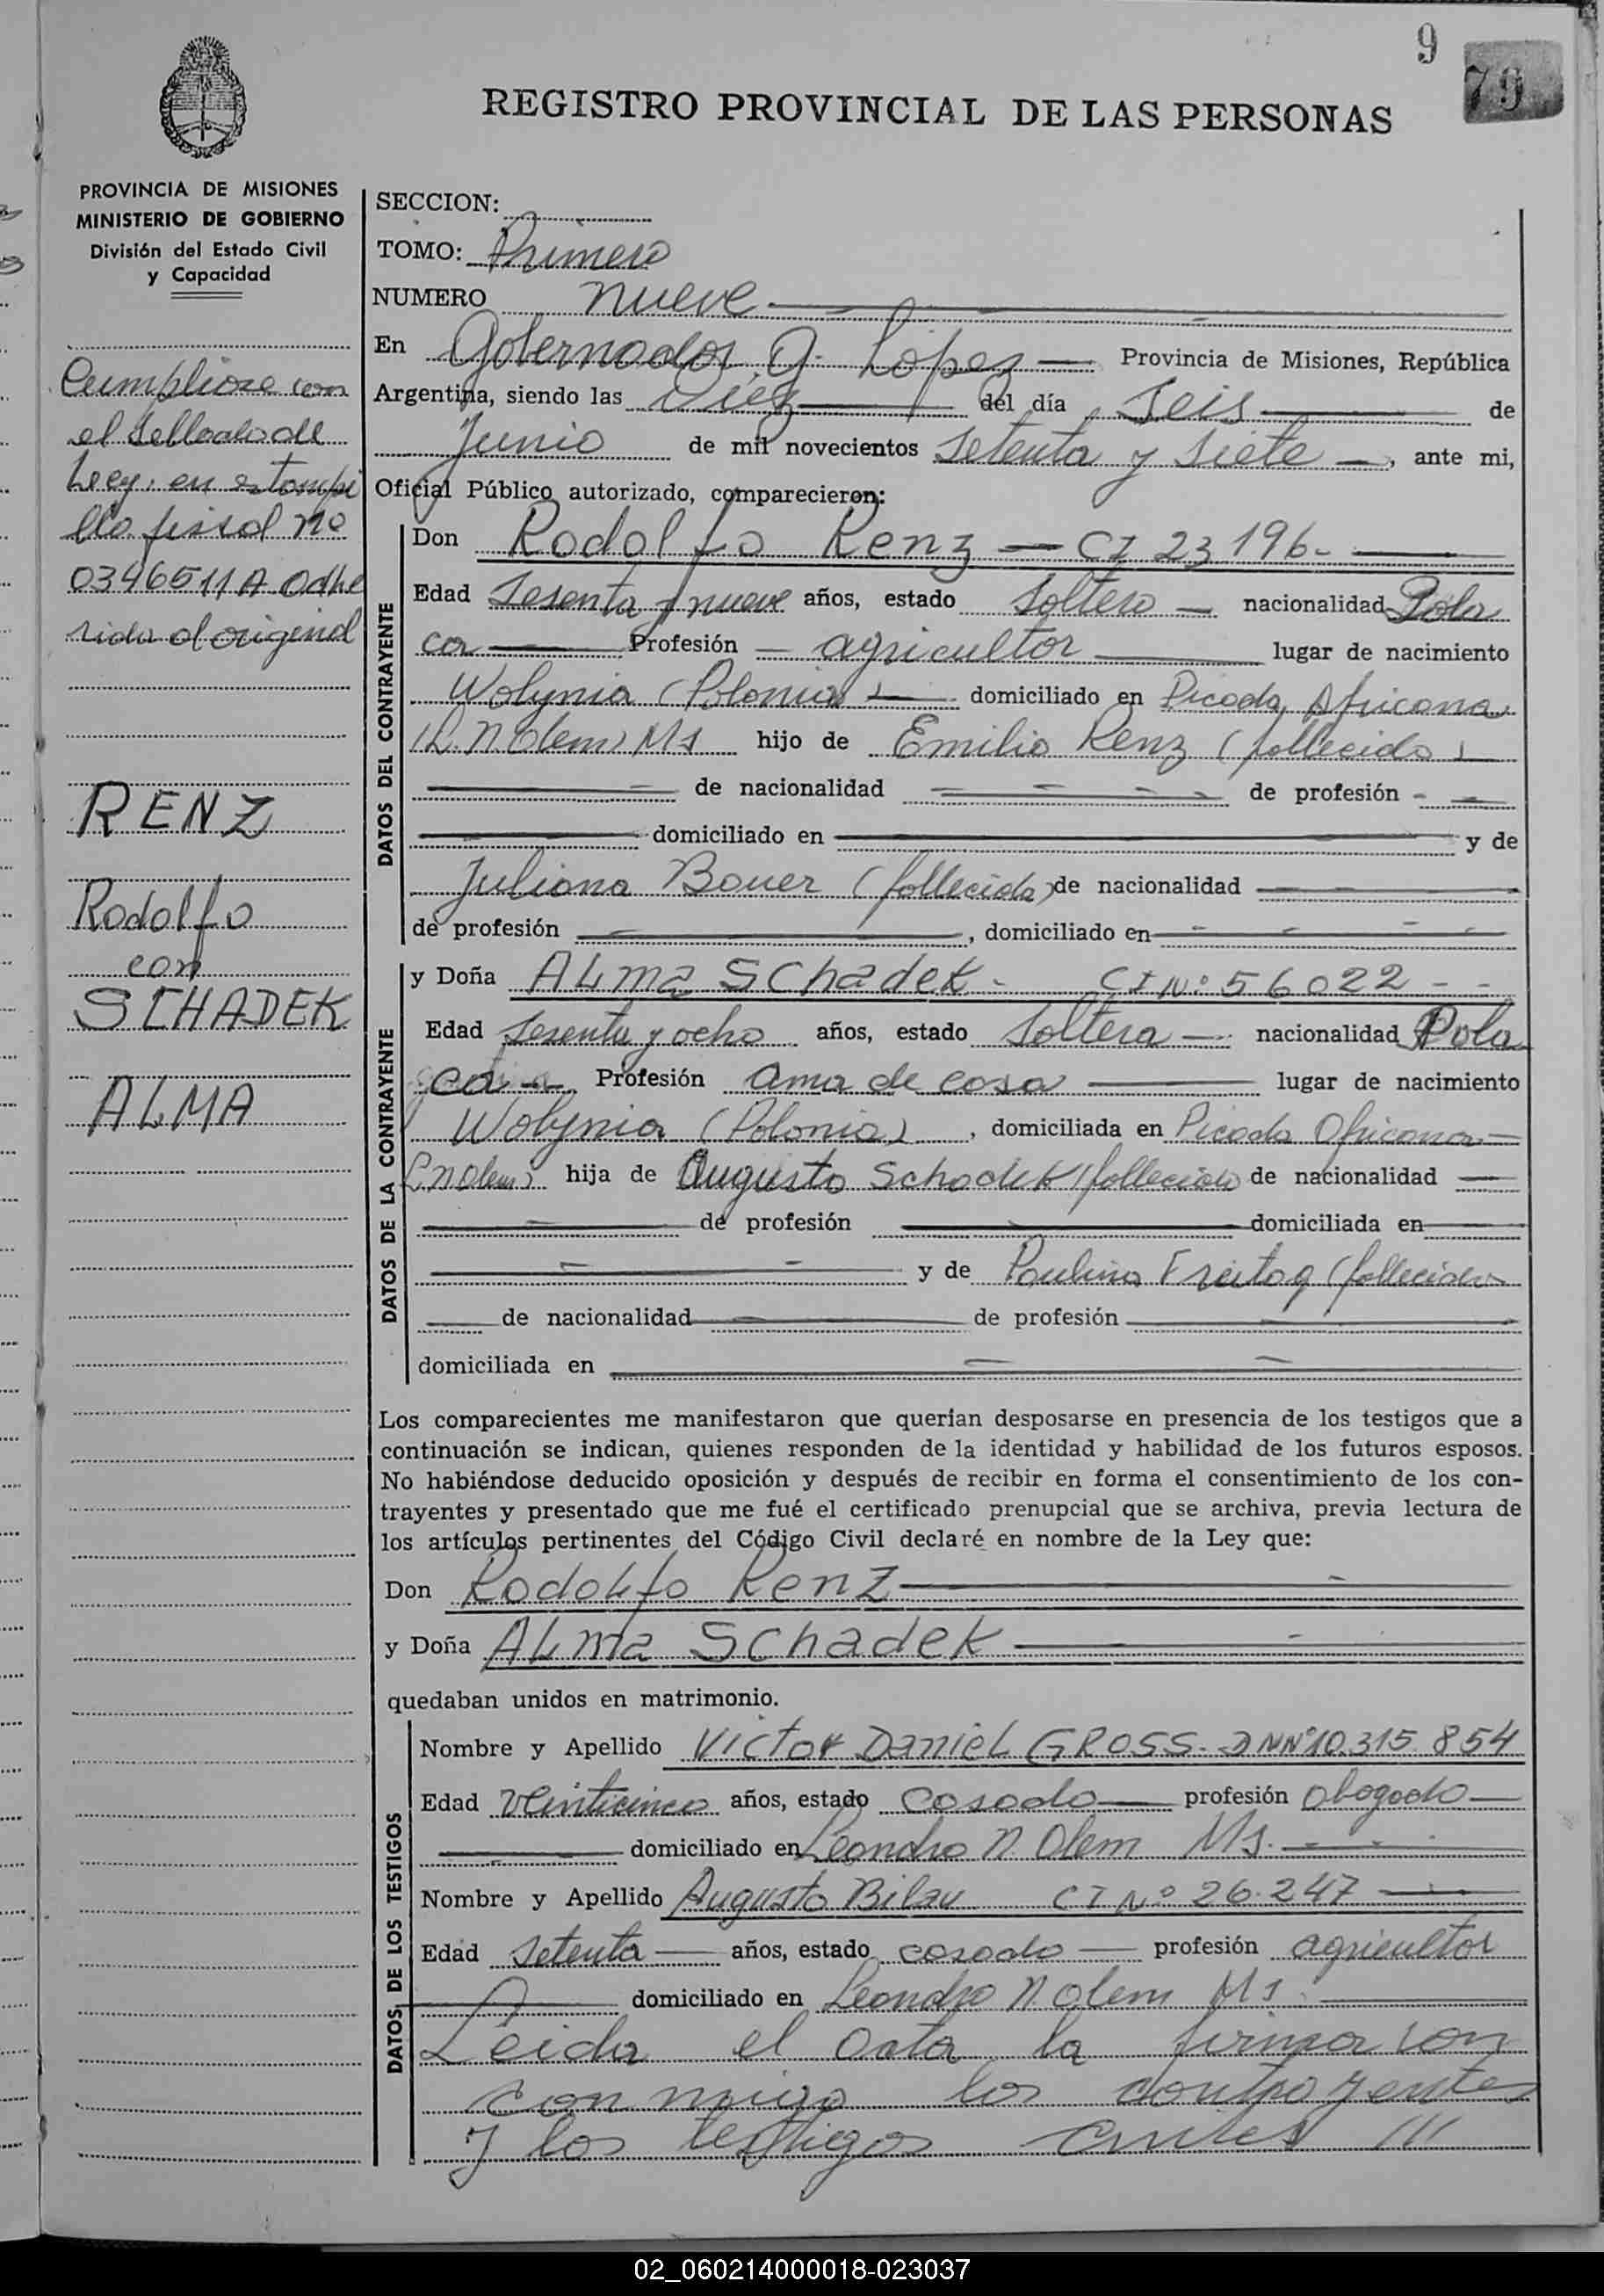 9
79
REGISTRO PROVINCIAL DE LAS PERSONAS
PROVINCIA DE MISIONES
MINISTERIO DE GOBIERNO
División del Estado Civil
y Capacidad
Cumpliose con
el sellado de
Ley, en estampi
lla fiscal nº
0346511 A adhe
rida al original
RENZ
Rodolfo
con
SCHADEK
ALMA
SECCION:
TOMO: Primero
NUMERO nueve
En Gobernador J. López Provincia de Misiones, República
Argentina, siendo las Diez del día Seis de
Junio de mil novecientos Setenta y Siete, ante mi,
Oficial Público autorizado, comparecieron:
DATOS DEL CONTRAYENTE
Don Rodolfo Renz - CI 23196-
Edad Sesenta y nueve años, estado Soltero nacionalidad Pola
ca Profesión agricultor lugar de nacimiento
Wolynia (Polonia) domiciliado en Picada Africana
(L. N. Alem) Ms hijo de Emilio Renz (fallecido)
de nacionalidad de profesión
domiciliado en y de
Juliana Bauer (fallecida) de nacionalidad
de profesión , domiciliado en
DATOS DE LA CONTRAYENTE
y Doña ALma Schadek - CI Nº 56022 - -
Edad Sesenta y ocho años, estado Soltera nacionalidad Pola
ca Profesión ama de casa lugar de nacimiento
Wolynia (Polonia) , domiciliada en Picada Africana
L N Alem) hija de Augusto Schadek (fallecido de nacionalidad
de profesión domiciliada en
y de Paulina Freitag (fallecida
de nacionalidad de profesión
domiciliada en
Los comparecientes me manifestaron que querían desposarse en presencia de los testigos que a
continuación se indican, quienes responden de la identidad y habilidad de los futuros esposos.
No habiéndose deducido oposición y después de recibir en forma el consentimiento de los con-
trayentes y presentado que me fué el certificado prenupcial que se archiva, previa lectura de
los artículos pertinentes del Código Civil declaré en nombre de la Ley que:
Don Rodolfo Renz
y Doña ALma Schadek
quedaban unidos en matrimonio.
DATOS DE LOS TESTIGOS
Nombre y Apellido Victor Daniel GROSS. DNNº 10.315 854
Edad Veinticinco años, estado casado profesión abogado
domiciliado en Leandro N. Alem Ms.
Nombre y Apellido Augusto Bilau CI Nº 26.247
Edad Setenta años, estado casado profesión agricultor
domiciliado en Leandro N. Alem Ms
Leida el acta la firman con
con migo los contrayentes
y los testigos ///
02_060214000018-023037